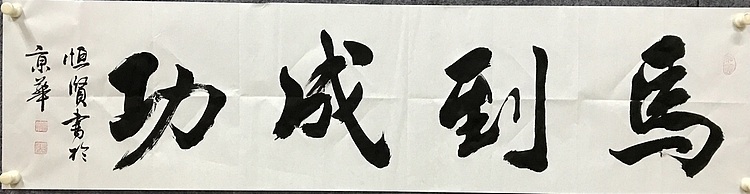 馬到成功
恒賢書於
京華